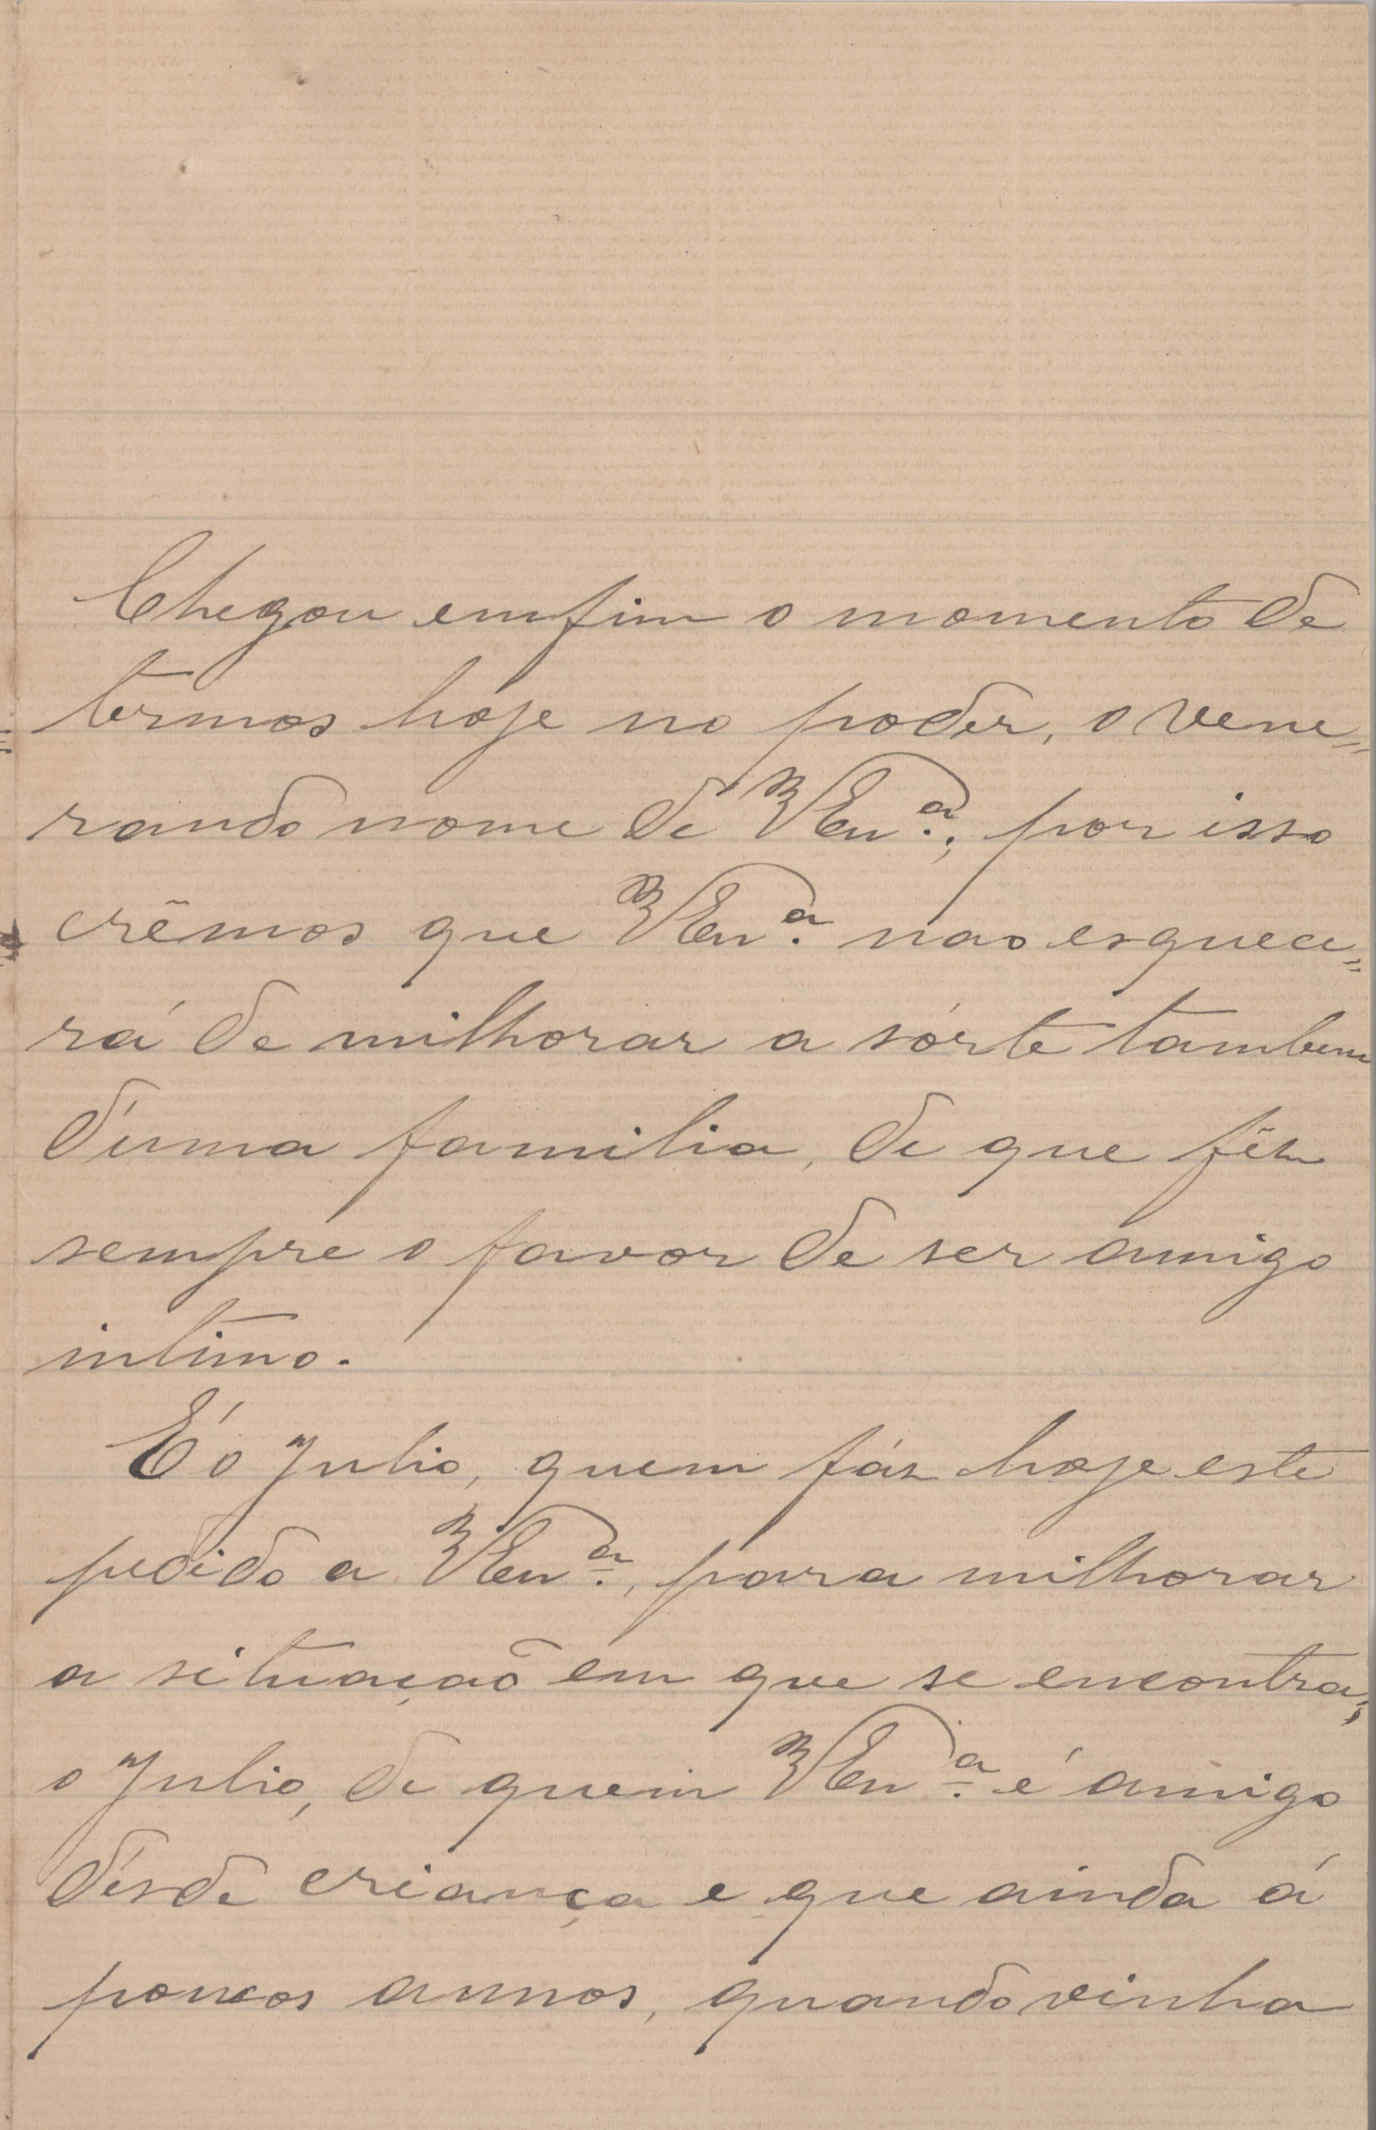 Chegou emfim o momento de
termos hoje no poder, o vene=
rando nome de V Exª.; por isso
crêmos que V Exª. nao esquece=
rá de milhorar a sórte tambem
d'uma familia, de que fêz
sempre o favor de ser amigo
intimo.
É o Julio, quem fáz hoje este
pedido a V Exª., para milhorar
a situaçaõ em que se encontra;
o Julio, de quem V Exª. é amigo
désde criança e que ainda á
poucos annos, quando vinha